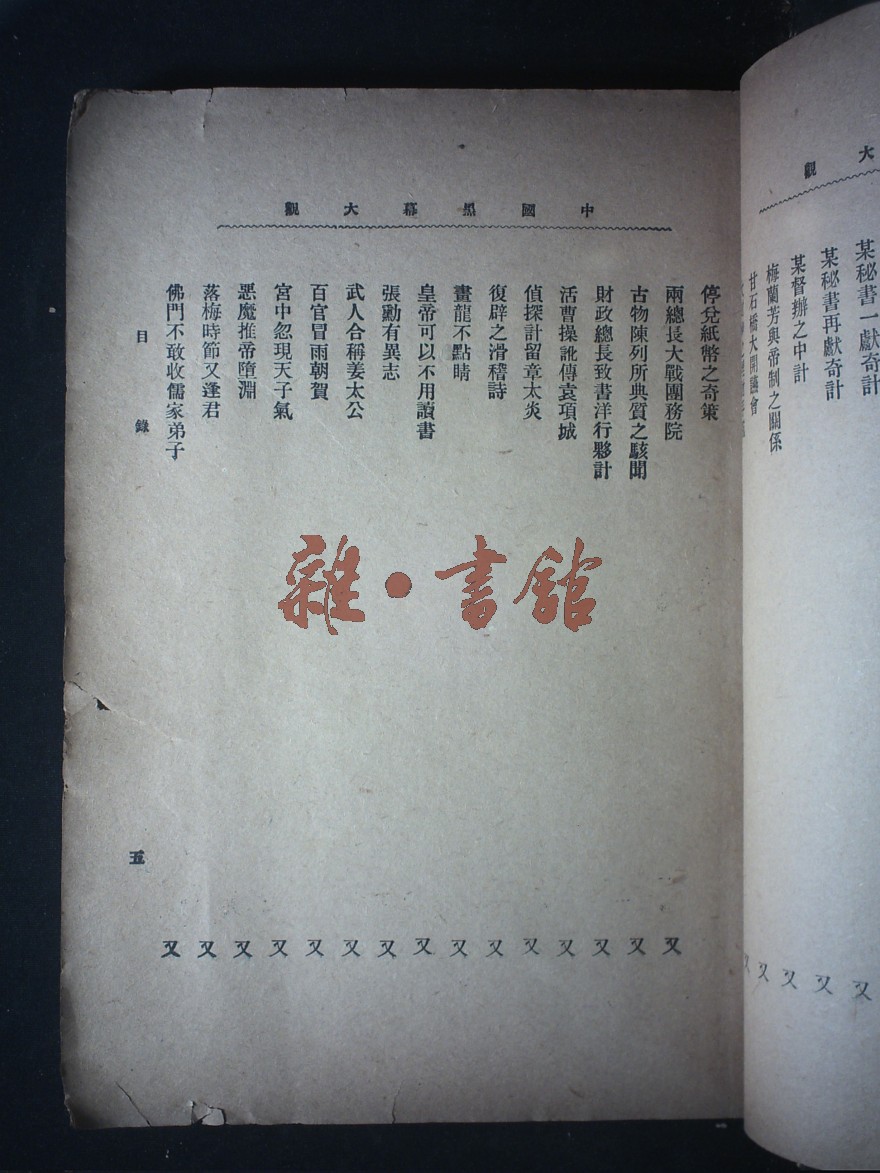 大觀
某秘書一獻奇計 又
某秘書再獻奇計 又
某督辦之中計 又
梅蘭芳與帝制之關係 又
甘石橋大開讌會
中國黑幕大觀
停兌紙幣之奇策
兩總長大戰團務院 又
古物陳列所典質之駭聞 又
財政總長致書洋行夥計 又
活曹操訛傳袁項城 又
偵探計留章太炎 又
復辟之滑稽詩 又
畫龍不點睛 又
皇帝可以不用讀書 又
張勳有異志 又
武人合稱姜太公 又
百官冒雨朝賀 又
宮中忽現天子氣 又
惡魔推帝墮淵 又
落梅時節又逢君 又
佛門不敢收儒家弟子 又
目錄 五
雜·書館